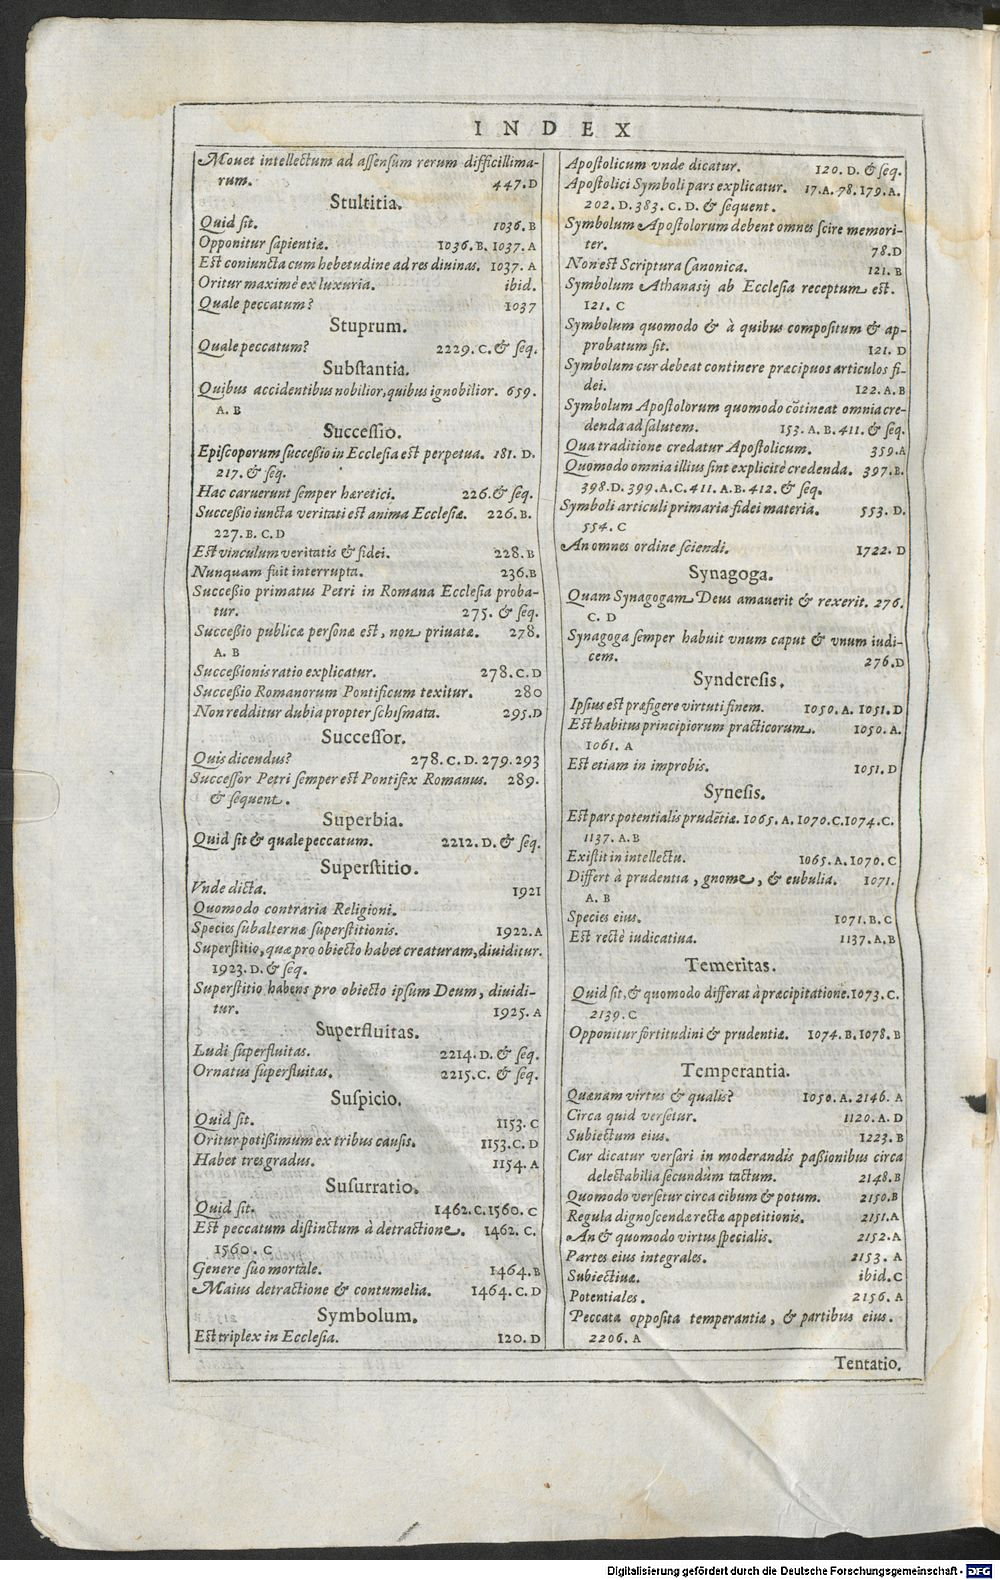 INDEX
Mouet intellectum ad assensum rerum difficillima-
rum. 447.D
Stultitia.
Quid sit. 1036.B
Opponitur sapientiæ. 1036.B. 1037.A
Est coniuncta cum hebetudine ad res diuinas. 1037.A
Oritur maximè ex luxuria. ibid.
Quale peccatum? 1037
Stuprum.
Quale peccatum? 2229.C. & seq.
Substantia.
Quibus accidentibus nobilior, quibus ignobilior. 659.
A. B
Successio.
Episcoporum successio in Ecclesia est perpetua. 181. D.
217. & seq.
Hac caruerunt semper hæretici. 226. & seq.
Successio iuncta veritati est anima Ecclesiæ. 226.B.
227.B.C.D
Est vinculum veritatis & fidei. 228.B
Nunquam fuit interrupta. 236.B
Successio primatus Petri in Romana Ecclesia proba-
tur. 275. & seq.
Successio publicæ personæ est, non priuatæ. 278.
A. B
Successionis ratio explicatur. 278.C.D
Successio Romanorum Pontificum texitur. 280
Non redditur dubia propter schismata. 295.D
Successor.
Quis dicendus? 278.C.D. 279.293
Successor Petri semper est Pontifex Romanus. 289.
& sequent.
Superbia.
Quid sit & quale peccatum. 2212.D. & seq.
Superstitio.
Vnde dicta. 1921
Quomodo contraria Religioni.
Species subalternæ superstitionis. 1922.A
Superstitio, quæ pro obiecto habet creaturam, diuiditur.
1923.D. & seq.
Superstitio habens pro obiecto ipsum Deum, diuidi-
tur. 1925.A
Superfluitas.
Ludi superfluitas. 2214.D. & seq.
Ornatus superfluitas. 2215.C. & seq.
Suspicio.
Quid sit. 1153.C
Oritur potissimum ex tribus causis. 1153.C.D
Habet tres gradus. 1154.A
Susurratio.
Quid sit. 1462.C.1560.C
Est peccatum distinctum à detractione. 1462.C.
1560.C
Genere suo mortale. 1464.B
Maius detractione & contumelia. 1464.C.D
Symbolum.
Est triplex in Ecclesia. 120.D
Apostolicum vnde dicatur. 120.D. & seq.
Apostolici Symboli pars explicatur. 17.A. 78. 179.A.
202.D. 383.C.D. & sequent.
Symbolum Apostolorum debent omnes scire memori-
ter. 78.D
Non est Scriptura Canonica. 121.B
Symbolum Athanasij ab Ecclesia receptum est.
121.C
Symbolum quomodo & à quibus compositum & ap-
probatum sit. 121.D
Symbolum cur debeat continere præcipuos articulos fi-
dei. 122.A.B
Symbolum Apostolorum quomodo cõtineat omnia cre-
denda ad salutem. 153.A.B. 411. & seq.
Qua traditione credatur Apostolicum. 359.A
Quomodo omnia illius sint explicitè credenda. 397.B.
398.D. 399.A.C. 411.A.B. 412. & seq.
Symboli articuli primaria fidei materia. 553.D.
554.C
An omnes ordine sciendi. 1722.D
Synagoga.
Quam Synagogam Deus amauerit & rexerit. 276.
C. D
Synagoga semper habuit vnum caput & vnum iudi-
cem. 276.D
Synderesis.
Ipsius est præfigere virtuti finem. 1050.A. 1051.D
Est habitus principiorum practicorum. 1050.A.
1061.A
Est etiam in improbis. 1051.D
Synesis.
Est pars potentialis prudẽtiæ. 1065.A. 1070.C.1074.C.
1137.A.B
Existit in intellectu. 1065.A. 1070.C
Differt à prudentia, gnome, & eubulia. 1071.
A. B
Species eius. 1071.B.C
Est rectè iudicatiua. 1137.A.B
Temeritas.
Quid sit, & quomodo differat à præcipitatione. 1073.C.
2139.C
Opponitur fortitudini & prudentiæ. 1074.B. 1078.B
Temperantia.
Quænam virtus & qualis? 1050.A. 2146.A
Circa quid versetur. 1120.A.D
Subiectum eius. 1223.B
Cur dicatur versari in moderandis passionibus circa
delectabilia secundùm tactum. 2148.B
Quomodo versetur circa cibum & potum. 2150.B
Regula dignoscendæ rectæ appetitionis. 2151.A
An & quomodo virtus specialis. 2152.A
Partes eius integrales. 2153.A
Subiectiuæ. ibid.C
Potentiales. 2156.A
Peccata opposita temperantiæ, & partibus eius.
2206.A
Tentatio.
Digitalisierung gefördert durch die Deutsche Forschungsgemeinschaft - DFG